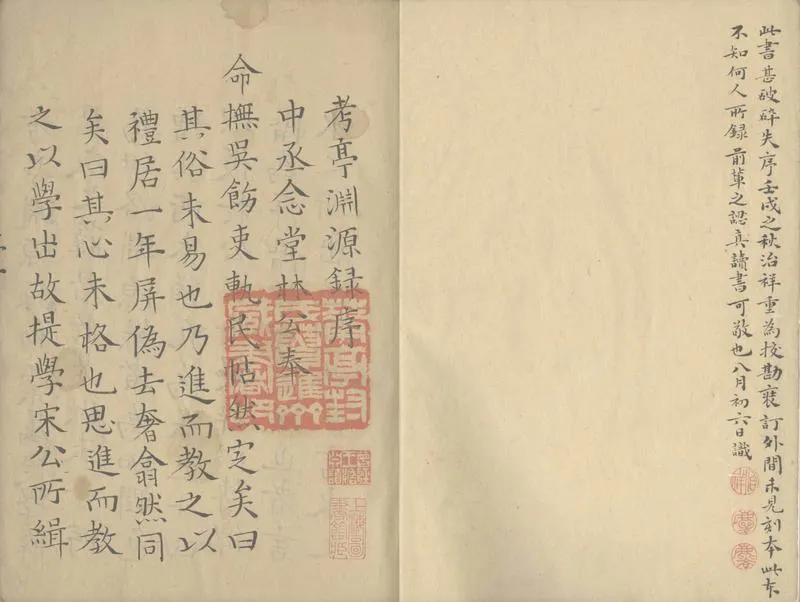 此書甚破碎失序壬戌之秋治祥重為挍勘裒訂外間未見刻本此本
不知何人所録前輩之認真讀書可敬也八月初六日識
考亭淵源録序
中丞念堂林公奉
命撫吳飭吏軌民帖然定矣曰
其俗未易也乃進而教之以
禮居一年屏偽去奢翕然同
矣曰其心未格也思進而教
之以學出故提學宋公所緝